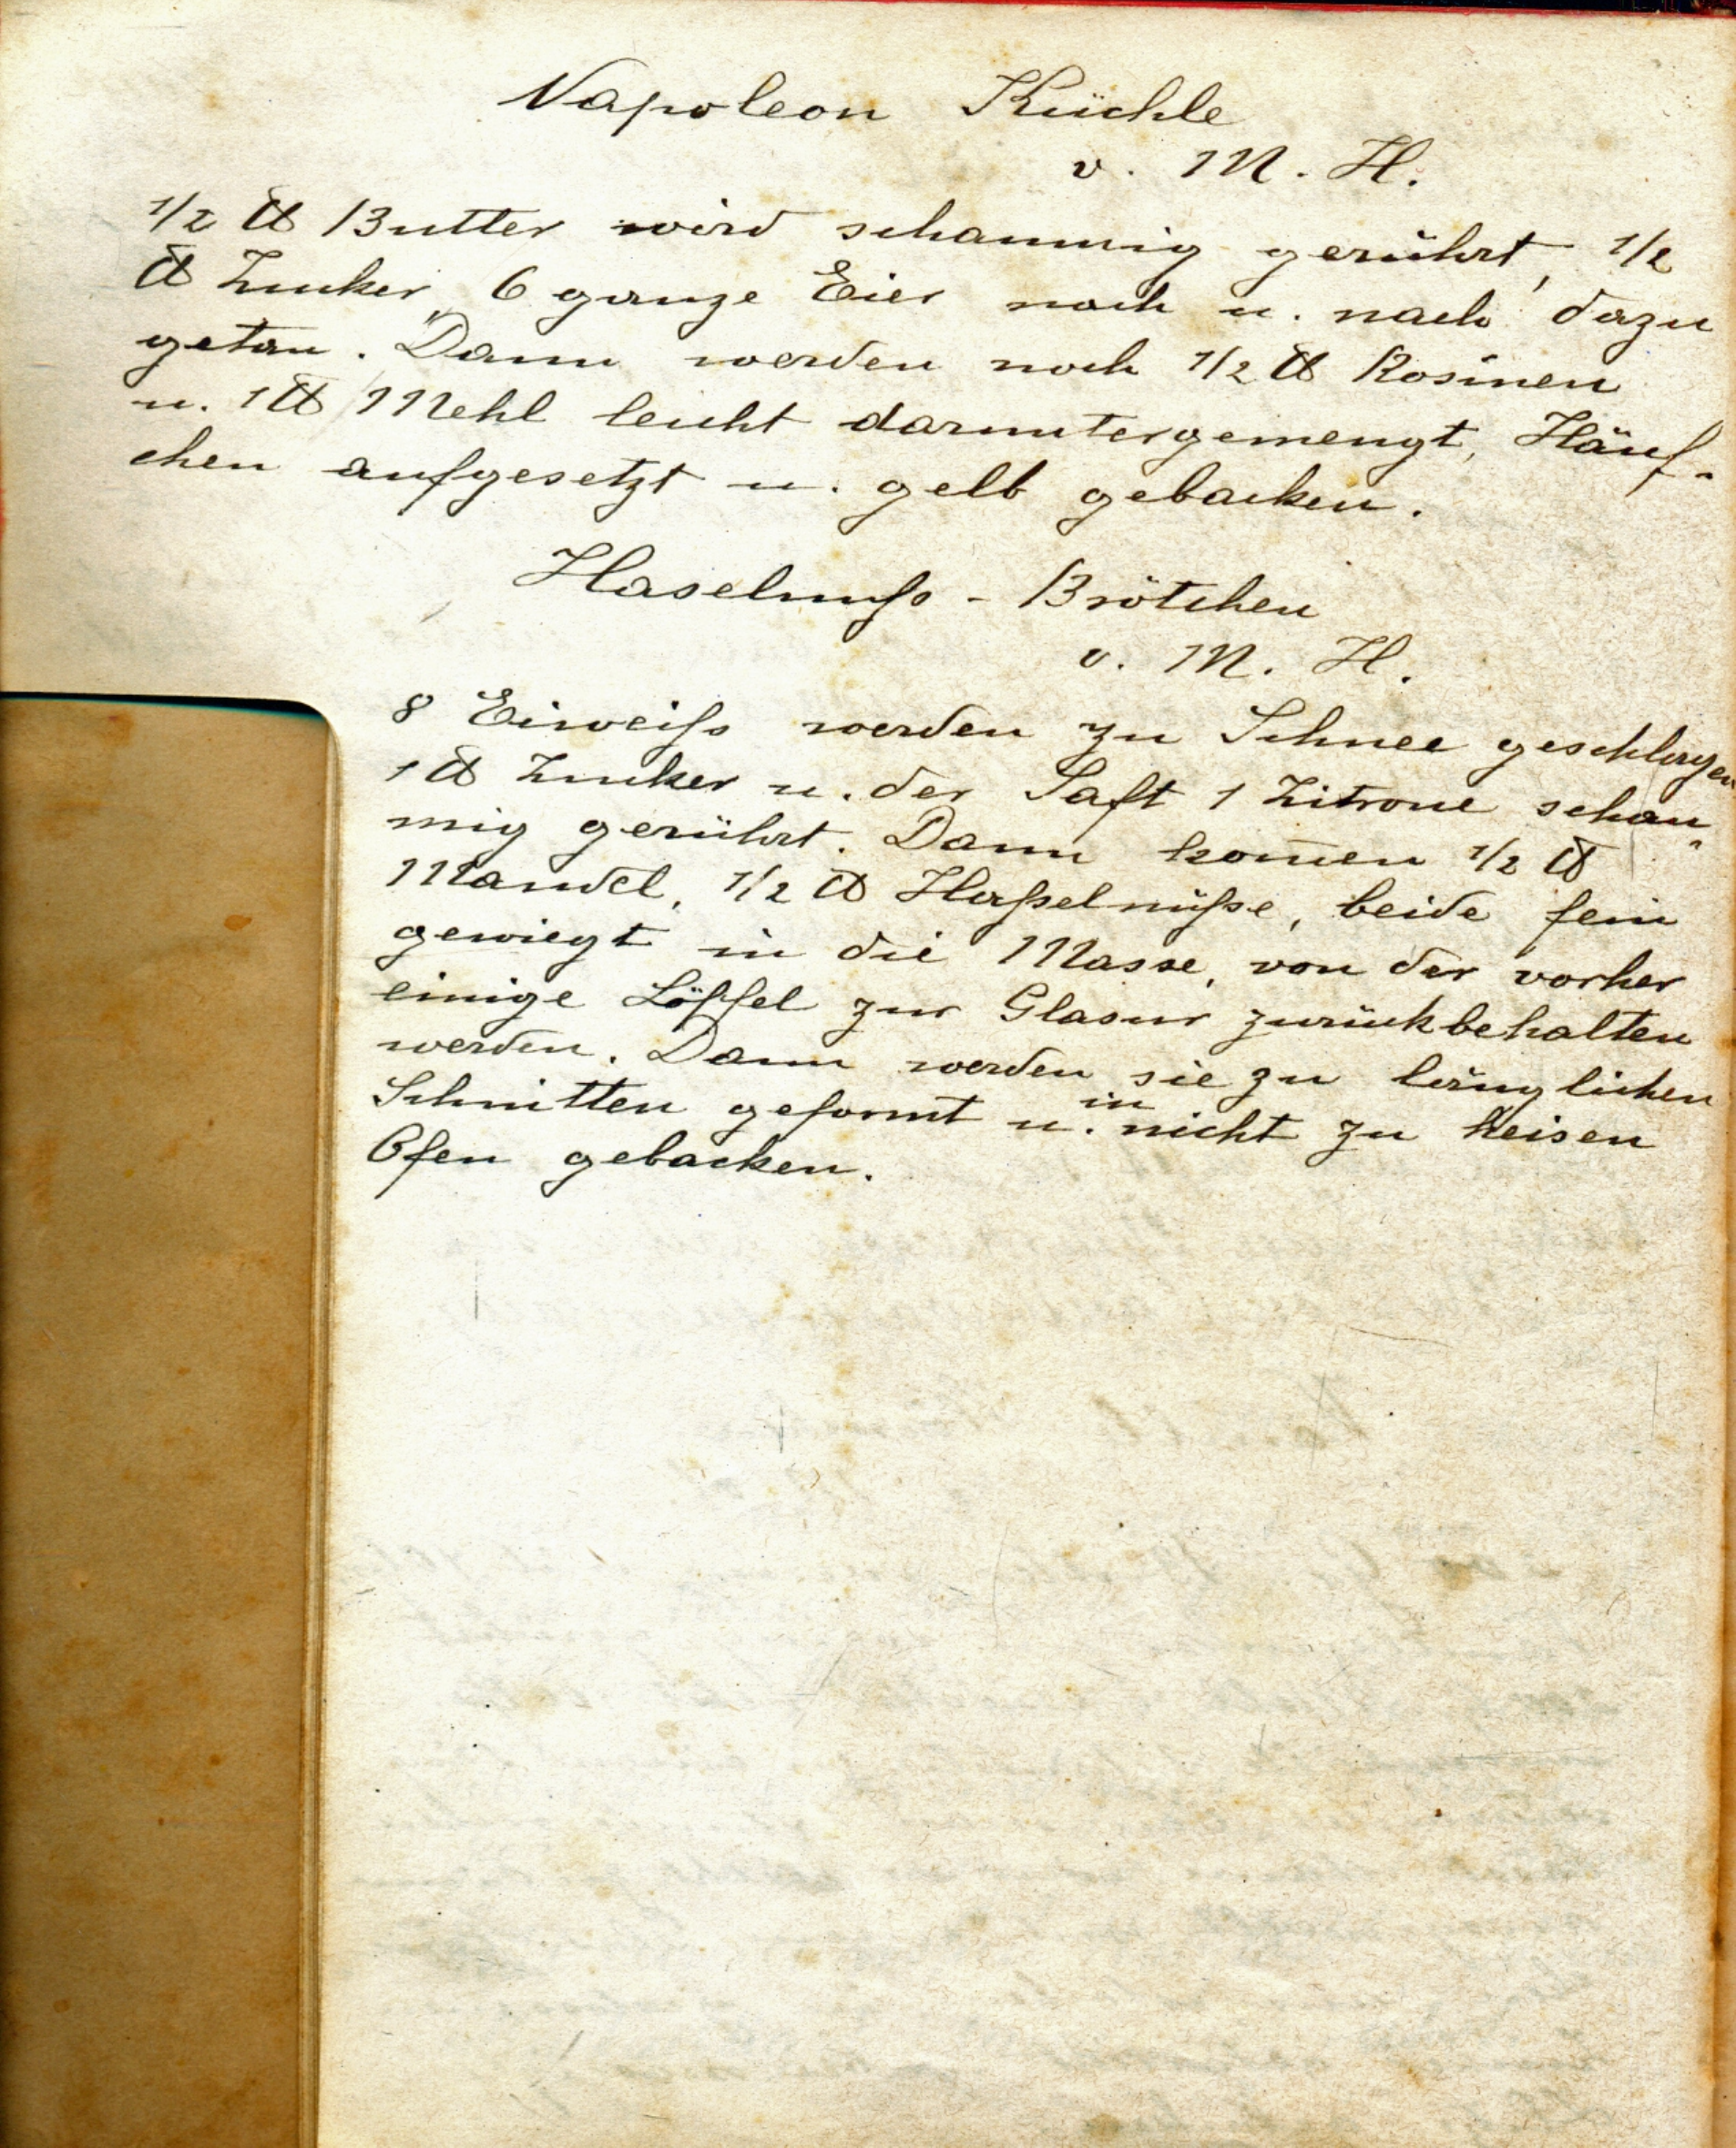 Napoleon Küchle
v. M. H.
1/2 ℔ Butter wird schaumig gerührt, 1/2
℔ Zucker, 6 ganze Eier nach u. nach dazu
getan. Dann werden noch 1/2 ℔ Rosinen
u. 1 ℔ Mehl leicht daruntergemengt, Häuf-
chen aufgesetzt u. gelb gebacken.
Haselnuſs - Brötchen
v. M. H.
8 Eiweiſs werden zu Schnee geschlagen
1 ℔ Zucker u. der Saft 1 Zitrone schau-
mig gerührt. Dann kom̄en 1/2 ℔
Mandel, 1/2 ℔ Haſselnüſse, beide fein
gewiegt in die Masse, von der vorher
einige Löffel zur Glasur zurückbehalten
werden. Dann werden sie zu länglichen
Schnitten geformt u. in nicht zu heisen
Ofen gebacken.